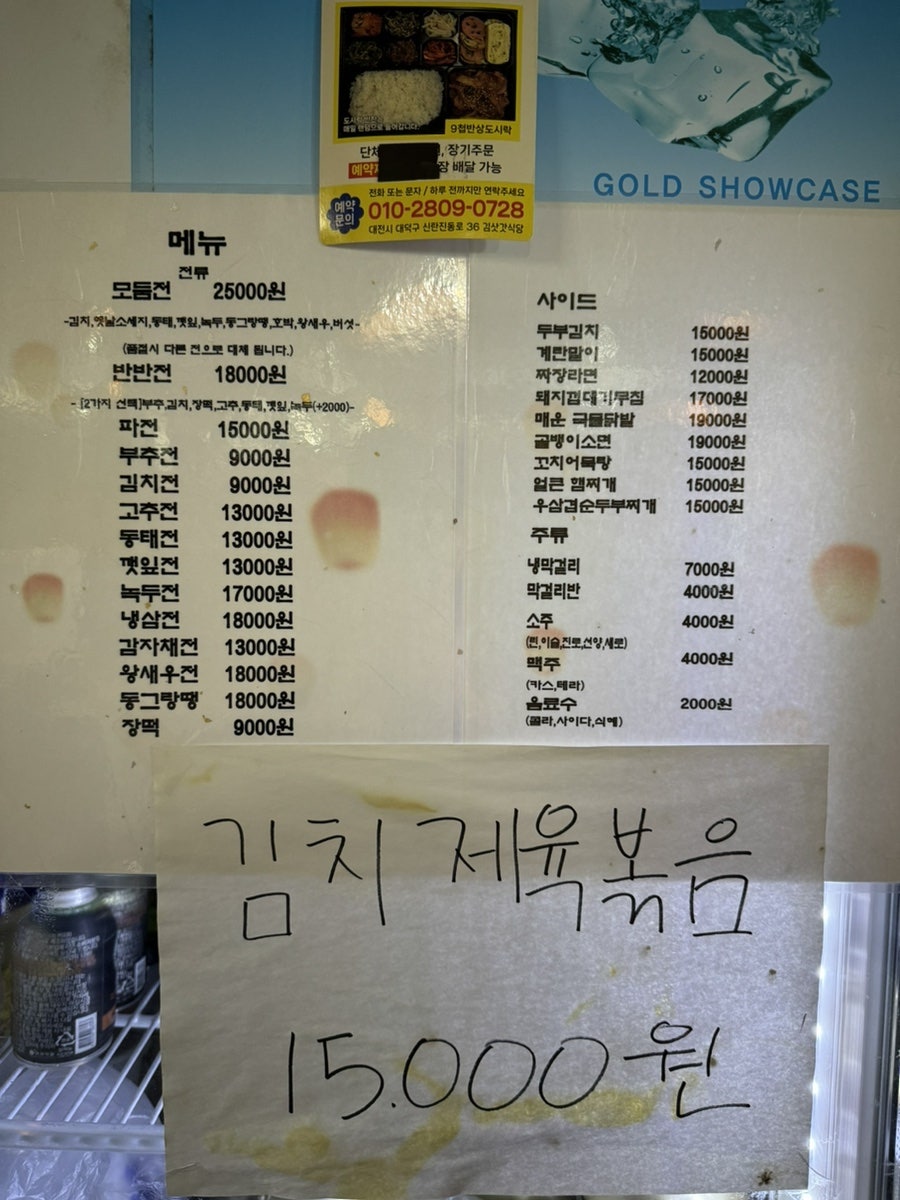 도시락 반찬은
매일 랜덤으로 들어갑니다!
9첩반상도시락
단체
, 장기주문
예약
장 배달 가능
전화 또는 문자 / 하루 전까지만 연락주세요
예약
문의
010-2809-0728
대전시 대덕구 신탄진동로 36 김삿갓식당
GOLD SHOWCASE
메뉴
전류
모듬전 25000원
-김치,옛날소세지,동태,깻잎,녹두,동그랑땡,호박,왕새우,버섯-
(품절시 다른 전으로 대체 됩니다.)
반반전 18000원
- [2가지 선택]부추,김치,장떡,고추,동태,깻잎,녹두(+2000)-
파전 15000원
부추전 9000원
김치전 9000원
고추전 13000원
동태전 13000원
깻잎전 13000원
녹두전 17000원
냉삼전 18000원
감자채전 13000원
왕새우전 18000원
동그랑땡 18000원
장떡 9000원
사이드
두부김치 15000원
계란말이 15000원
짜장라면 12000원
돼지껍대기무침 17000원
매운 국물닭발 19000원
골뱅이소면 19000원
꼬치어묵탕 15000원
얼큰 햄찌개 15000원
우삼겹순두부찌개 15000원
주류
냉막걸리 7000원
막걸리반 4000원
소주 4000원
(린,이슬,진로,선양,새로)
맥주 4000원
(카스,테라)
음료수 2000원
(콜라,사이다,식혜)
김치 제육볶음
15.000원